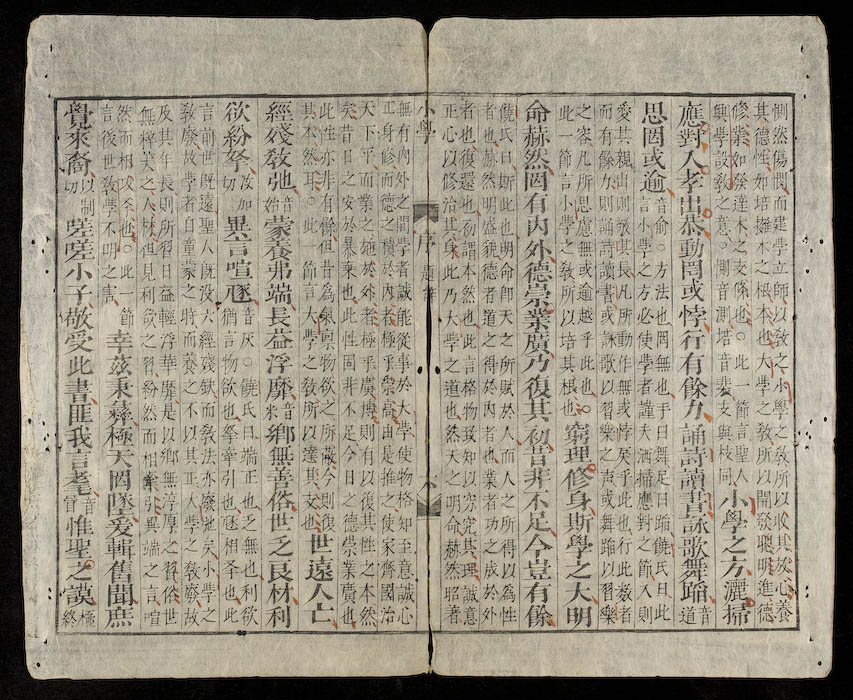 惻然傷憫而建學立師以敎之小學之敎所以收其放心養
其德性如培擁木之根本也大學之敎所以開發聰明進德
修業如發達木之支條也。此一節言聖人
興學設敎之意。惻音測培音裴支與枝同
小學之方灑掃
應對入孝出恭動罔或悖行有餘力誦詩讀書詠歌舞蹈音道
思罔或逾
音俞。方法也罔無也手曰舞足曰蹈饒氏曰此
言小學之方必使學者謹夫洒掃應對之節入則
愛其親出則敬其長凡所動作無或悖戾乎此也行此數者
而有餘力則誦詩讀書或詠歌以習樂之声或舞蹈以習樂
之容凡所思慮無或逾越乎此也。
此一節言小學之敎所以培其根也
窮理修身斯學之大明
命赫然罔有内外德崇業廣乃復其初昔非不足今豈有餘
饒氏曰斯此也明命即天之所賦於人而人之所得以為性
者也赫然明盛貌德者道之得於内者也業者功之成於外
者也復還也初謂本然也此言格物致知以窮究其理誠意
正心以修治其身此乃大學之道也然天之明命赫然昭著
小學 序 題辭
無有内外之間學者誠能從事於大學使物格知至意誠心
正身修而德之積於内者極乎崇高由是推之使家齊國治
天下平而業之施於外者極乎廣博則有以復其性之本然
矣昔日之安於暴棄也此性固非不足今日之德崇業廣也
此性亦非有餘但昔為氣稟物欲之所蔽今則復
其本然耳。此一節言大學之敎所以達其支也
世遠人亡
經殘敎弛音始蒙養弗端長益浮靡音米鄉無善俗世乏良材利
欲紛拏女加切異言喧豗
音灰。饒氏曰端正也乏無也利欲
猶言物欲也拏牽引也豗相也此
言前世既遠聖人既沒六經殘缺而敎法亦廢弛矣小學之
敎廢故學者自童蒙之時而養之不以其正大學之敎廢故
及其年長則所習日益輕浮華靡是以鄉無淳厚之習俗世
無粹美之人材但見利欲之習紛然而相牽引異端之言喧
然而相攻也。此一節
言後世敎學不明之害
幸茲秉彝極天罔墜爰輯舊聞庶
覺來裔以制切嗟嗟小子敬受此書匪我言耄音冒惟聖之謨